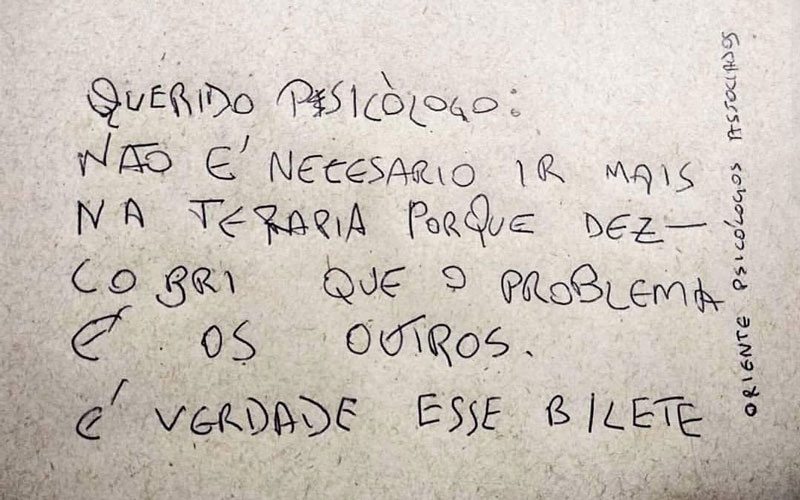 QUERIDO PSICÒLOGO:
NÃO E' NECESARIO IR MAIS
NA TERAPIA PORQUE DEZ-
COBRI QUE O PROBLEMA
E' OS OUTROS.
E' VERDADE ESSE BILETE
ORIENTE PSICÓLOGOS ASSOCIADOS